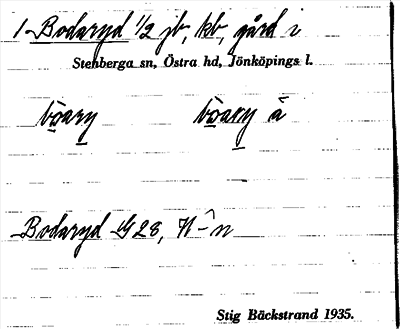 1 Bodaryd 1/2 jb, kb, gård i
Stenberga sn, Östra hd, Jönköpings l.
Bodaryd G 28, N-n
Stig Bäckstrand 1935.